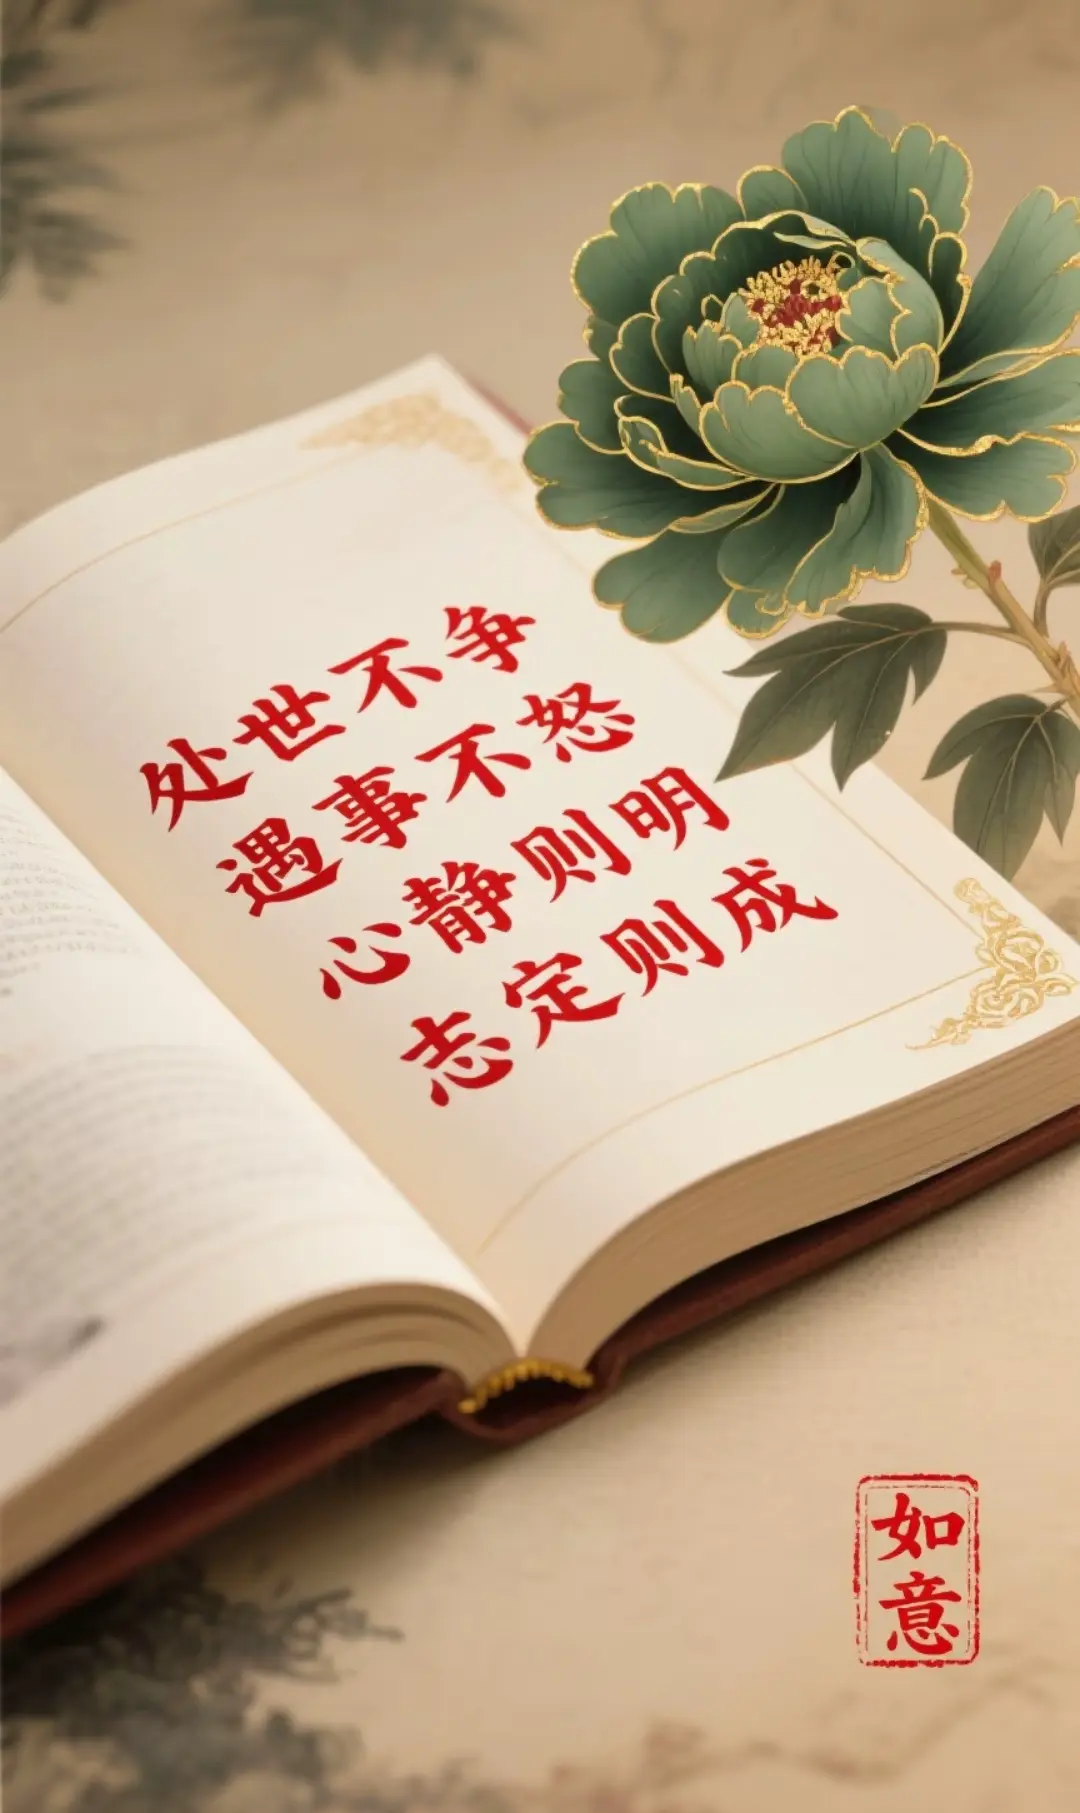 处世不争
遇事不怒
心静则明
志定则成
如意